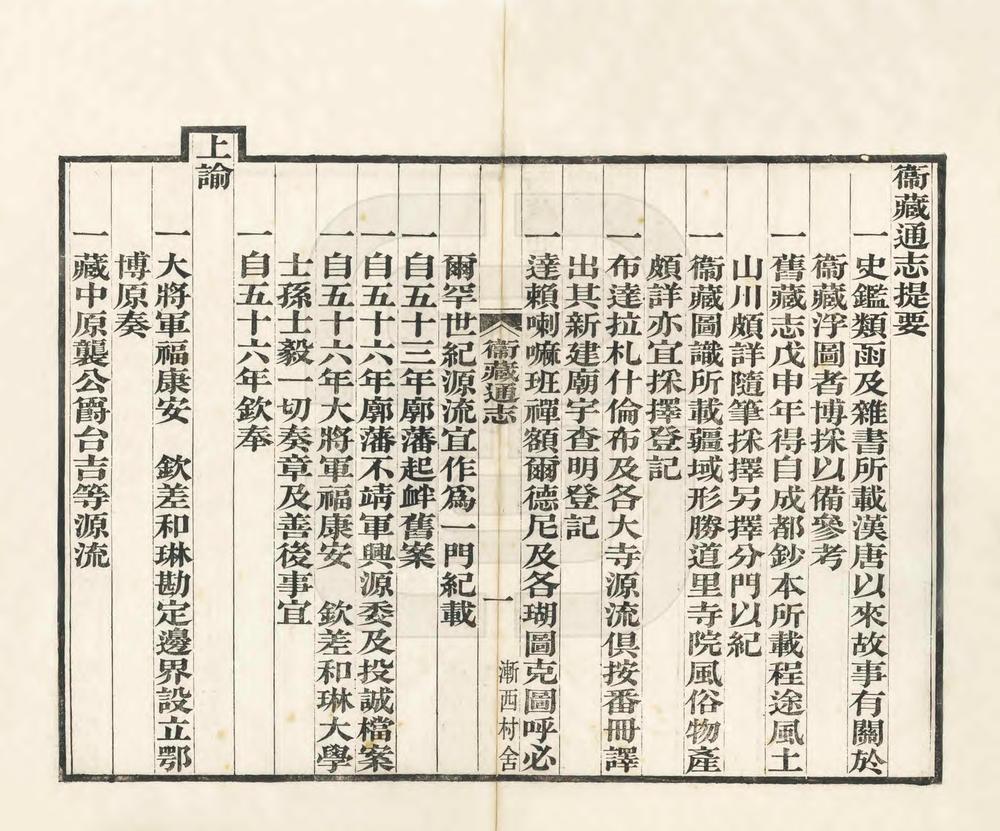 衞藏通志提要
一史鑑類函及雜書所載漢唐以來故事有關於
衞藏浮圖者博採以備參考
一舊藏志戊申年得自成都鈔本所載程途風土
山川頗詳隨筆採擇另擇分門以紀
一衞藏圖識所載疆域形勝道里寺院風俗物產
頗詳亦宜採擇登記
一布達拉札什倫布及各大寺源流俱按番冊譯
出其新建廟宇查明登記
一達賴喇嘛班禪額爾德尼及各瑚圖克圖呼必
衞藏通志 一 漸西村舍
爾罕世紀源流宜作爲一門紀載
一自五十三年廓藩起衅舊案
一自五十六年廓藩不靖軍興源委及投誠檔案
一自五十六年大將軍福康安 欽差和琳大學
士孫士毅一切奏章及善後事宜
一自五十六年欽奉
上諭
一大將軍福康安 欽差和琳勘定邊界設立鄂
博原奏
一藏中原襲公爵台吉等源流